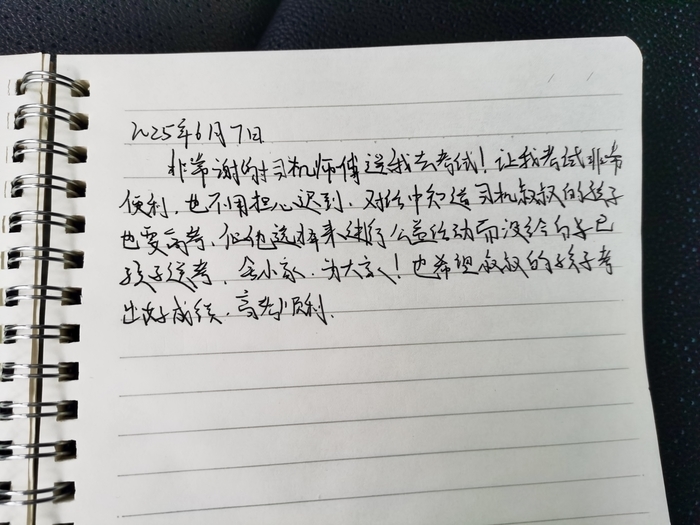 2025年6月7日
非常谢的时司机师傅送我去考试！让我考试非常
便利，也不用担心迟到，对话中知道司机叔叔的孩子
也要高考，但他选择来进行公益活动而没给自己
孩子送考，舍小家，为大家！也希望叔叔的孩子考
出好成绩，高考顺利.